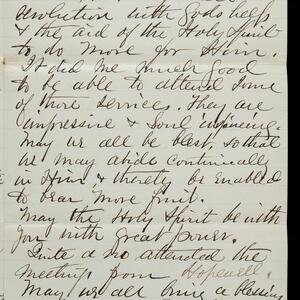 resolution with Gods help
& the aid of the Holy Spirit
to do more for Him.
It did me much good
to be able to attend some
of those services. They are
impressive & soul inspiring.
May we all be blest, so that
we may abide continually
in Him & thereby be enabled
to bear more fruit.
May the Holy Spirit be with
you with great power.
Quite a no attended the
meetings from Hopewell.
May we all bring a blessing